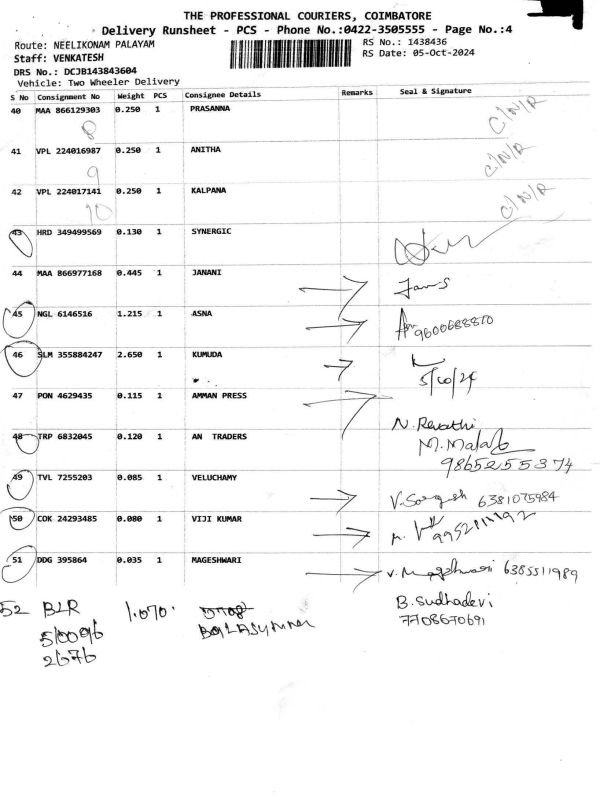 THE PROFESSIONAL COURIERS, COIMBATORE
Delivery Runsheet - PCS - Phone No.:0422-3505555 - Page No.:4
Route: NEELIKONAM PALAYAM
RS No.: 1438436
Staff: VENKATESH
RS Date: 05-Oct-2024
DRS No.: DCJB143843604
Vehicle: Two Wheeler Delivery
S No Consignment No Weight PCS Consignee Details Remarks Seal & Signature
40 MAA 866129303 0.250 1 PRASANNA C/N/R
8
41 VPL 224016987 0.250 1 ANITHA C/N/R
9
42 VPL 224017141 0.250 1 KALPANA C/N/R
10
43 HRD 349499569 0.130 1 SYNERGIC
44 MAA 866977168 0.445 1 JANANI
45 NGL 6146516 1.215 1 ASNA
9600688810
46 SLM 355884247 2.650 1 KUMUDA
5/10/24
47 PON 4629435 0.115 1 AMMAN PRESS
N. Revathi
48 TRP 6832045 0.120 1 AN TRADERS
M. Mala
9865255374
49 TVL 7255203 0.085 1 VELUCHAMY
6381075984
50 COK 24293485 0.080 1 VIJI KUMAR
51 DDG 395864 0.035 1 MAGESHWARI
V. Mageshwari 6385511989
52 BLR 1.070
B. Sudhadevi
7708670691
2676